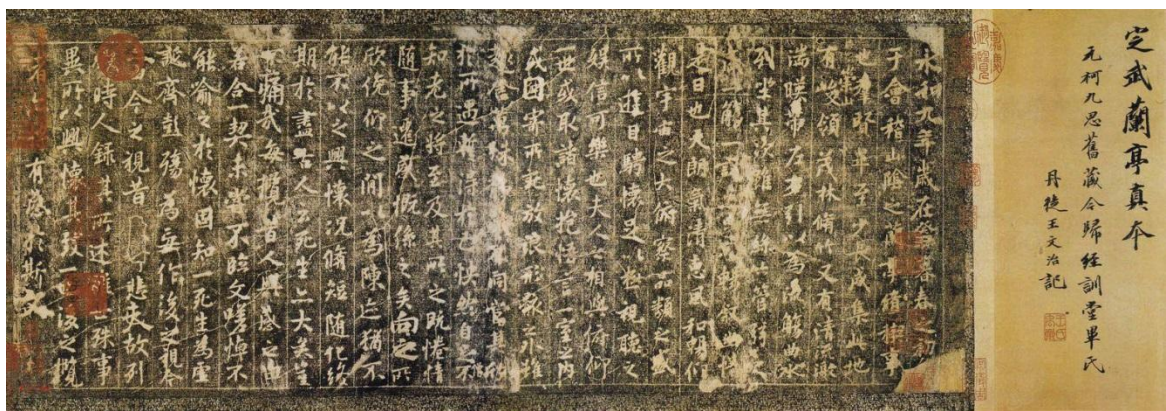 定武蘭亭真本
元柯九思舊藏今歸經訓堂畢氏
丹徒王文治記
永和九年歲在癸丑暮春之初
于會稽山陰之蘭亭脩稧事
也群賢畢至少長咸集此地
有崇山峻領茂林脩竹又有清流激
湍暎帶左右引以為流觴曲水
列坐其次雖無絲竹管弦之
一觴一詠亦足以暢敘幽情
是日也天朗氣清惠風和暢仰
觀宇宙之大俯察品類之盛
所以遊目騁懷足以極視聽之
娛信可樂也夫人之相與俯仰
一世或取諸懷抱悟言一室之內
或因寄所託放浪形骸之外雖
趣舍萬殊靜躁不同當其欣
於所遇暫得於己快然自足不
知老之將至及其所之既惓情
隨事遷感慨係之矣向之所
欣俛仰之間以為陳迹猶不
能不以之興懷況脩短隨化終
期於盡古人云死生亦大矣豈
不痛哉每攬昔人興感之由
若合一契未嘗不臨文嗟悼不
能喻之於懷固知一死生為虛
誕齊彭殤為妄作後之視今
今之視昔悲夫故列
時人錄其所述殊事
異所以興懷其致一也後之攬
者有感於斯文